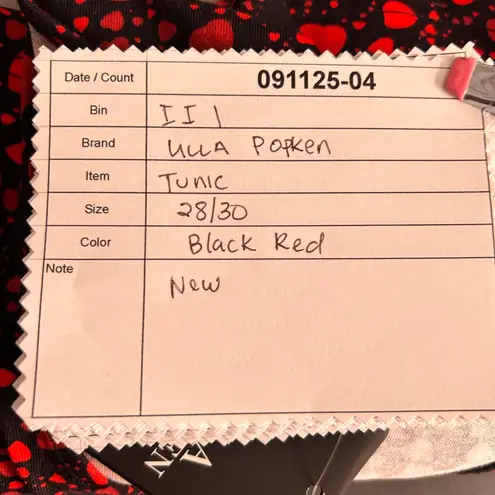 Date / Count 091125-04
Bin III
Brand ULLA Popken
Item Tunic
Size 28/30
Color Black Red
Note New